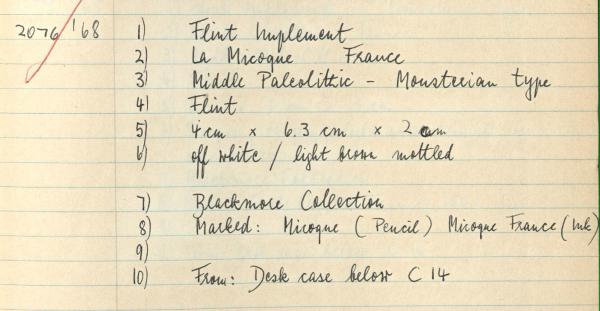 2076/'68 1) Flint Implement
2) La Micoque France
3) Middle Paleolithic - Mousterian type
4) Flint
5) 4 cm x 6.3 cm x 2 cm
6) off white / light brown mottled
7) Blackmore Collection
8) Marked: Micoque (Pencil) Micoque France (Ink)
9)
10) From: Desk case below C 14